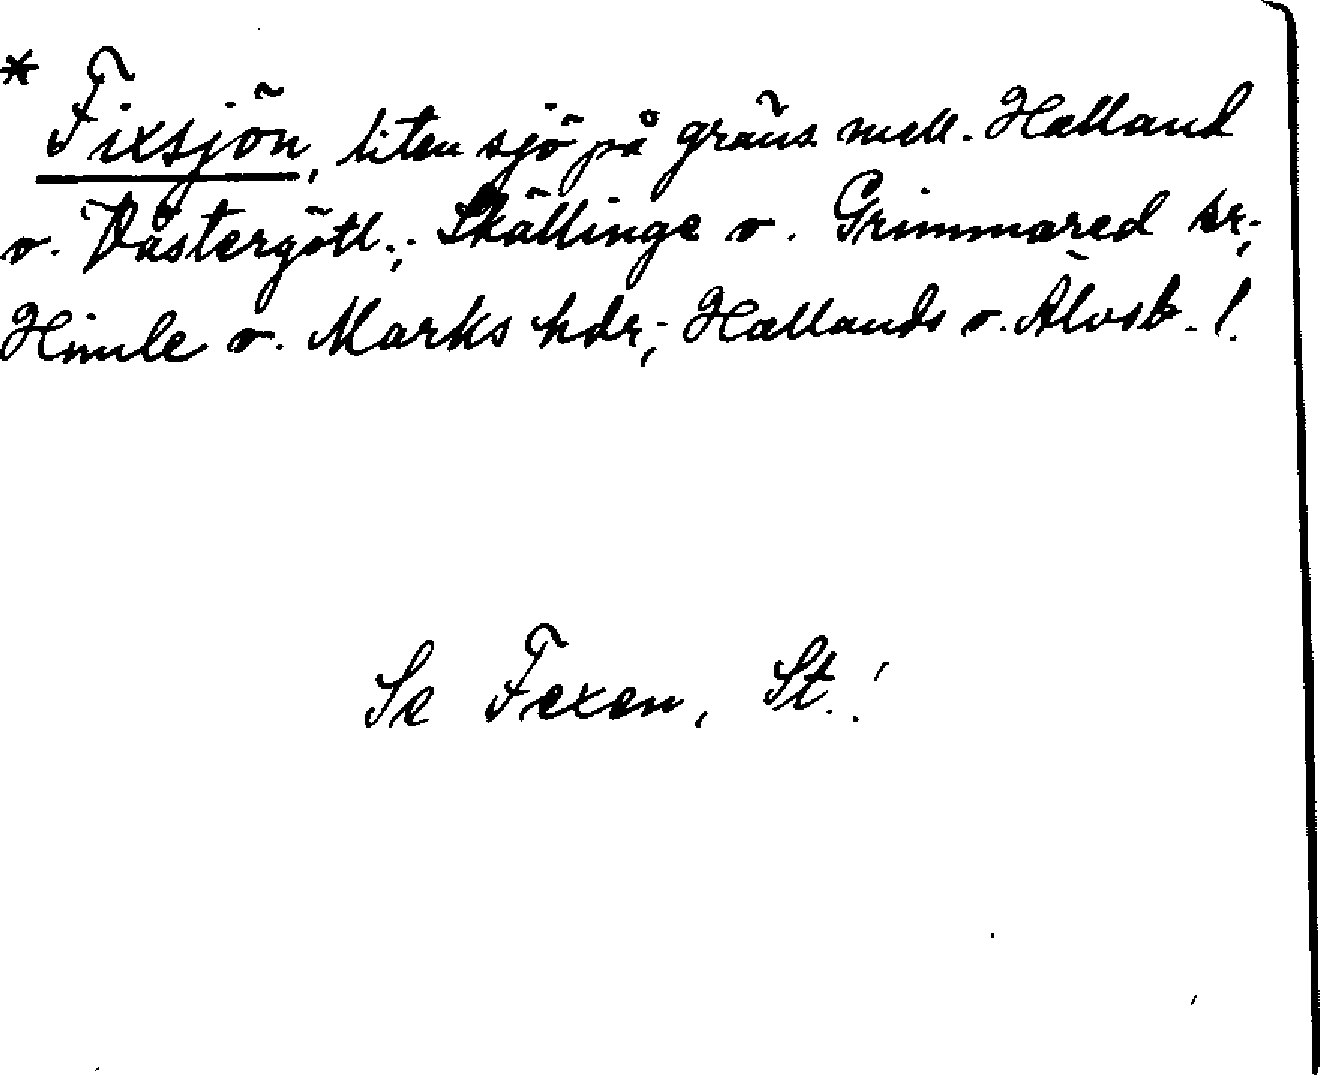 * Fixsjön, liten sjö på gräns mell. Halland
o. Västergötl.; Skällinge o. Grimmared sr;
Himle o. Marks hdr; Hallands o. Älvsb. l.
Se Fexen, St.!